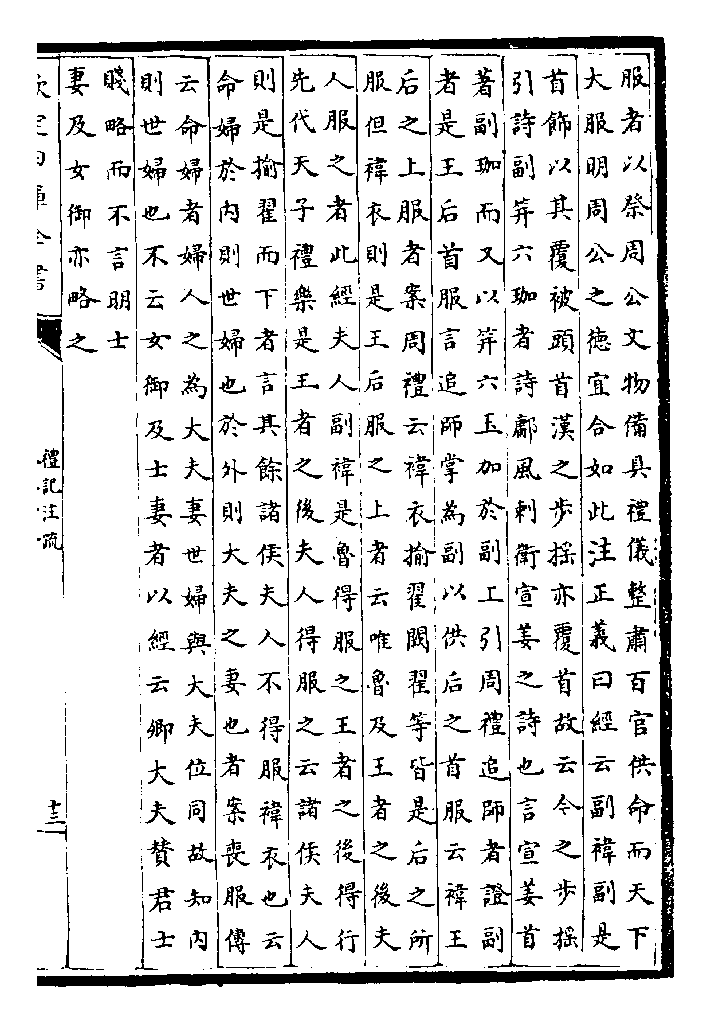 服者以祭周公文物備具禮儀整肅百官供命而天下
大服明周公之徳宜合如此注正義曰經云副褘副是
首飾以其覆被頭首漢之步揺亦覆首故云今之步揺
引詩副笄六珈者詩鄘風刺衛宣姜之詩也言宣姜首
著副珈而又以笄六玉加於副工引周禮追師者證副
者是王后首服言追師掌為副以供后之首服云褘王
后之上服者案周禮云褘衣揄翟闕翟等皆是后之所
服但褘衣則是王后服之上者云唯魯及王者之後夫
人服之者此經夫人副褘是魯得服之王者之後得行
先代天子禮樂是王者之後夫人得服之云諸侯夫人
則是揄翟而下者言其餘諸侯夫人不得服褘衣也云
命婦於内則世婦也於外則大夫之妻也者案喪服傳
云命婦者婦人之為大夫妻世婦與大夫位同故知内
則世婦也不云女御及士妻者以經云卿大夫賛君士
賤略而不言明士
妻及女御亦略之
欽定四庫全書
禮記注疏
十三